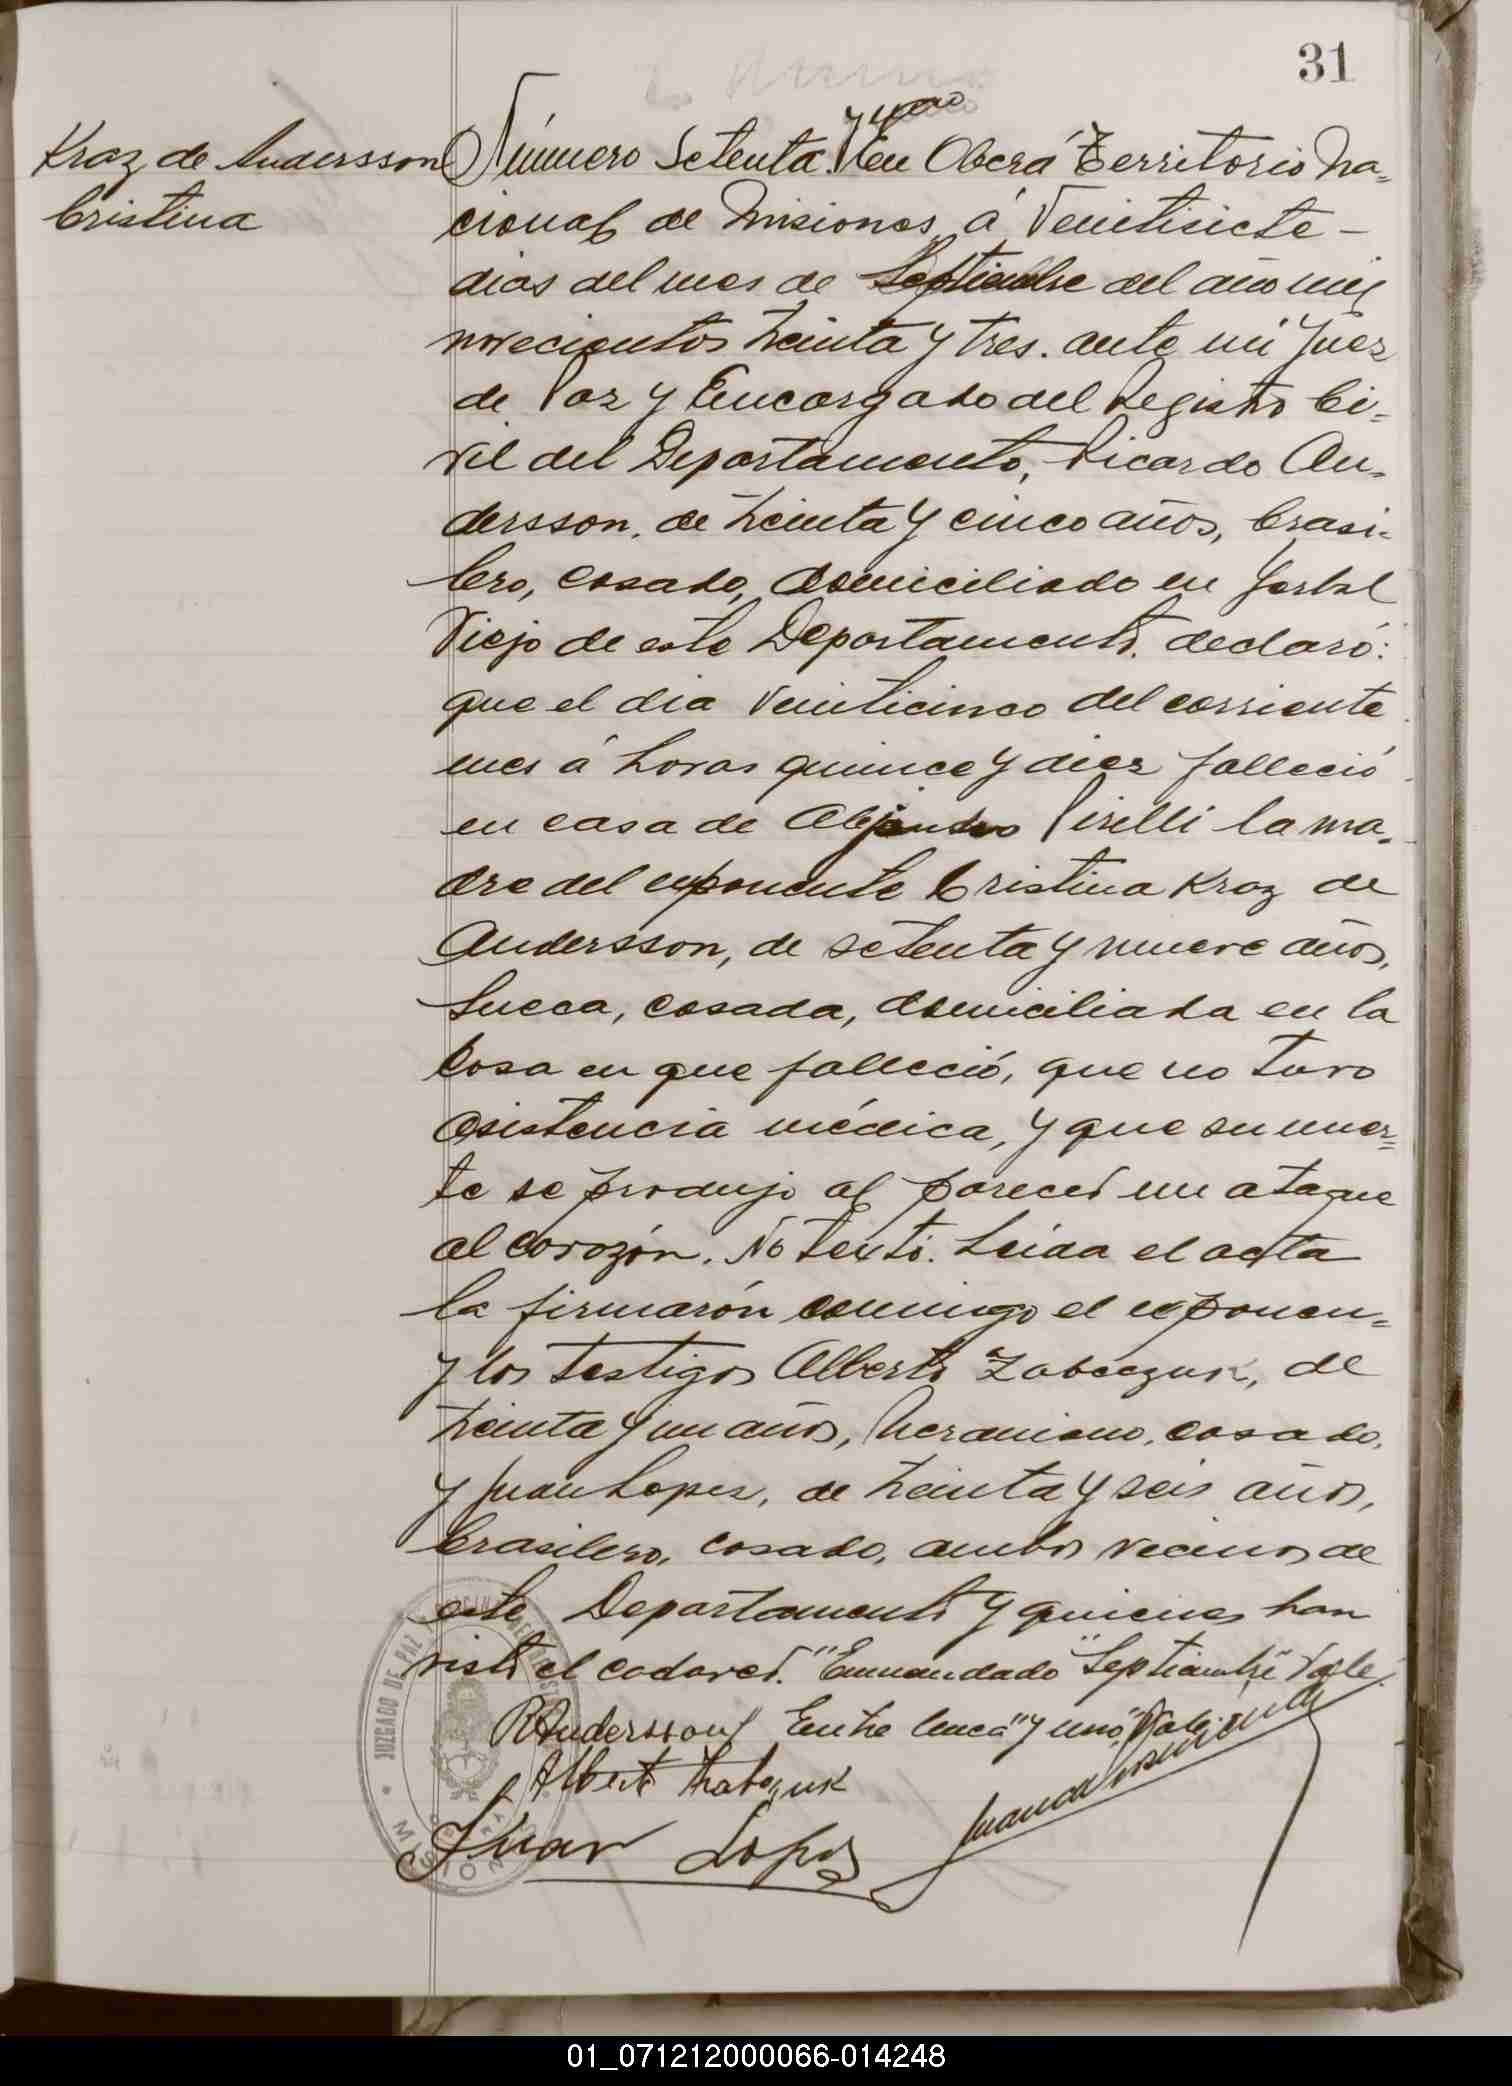 31
Kraz de Andersson
Cristina
y uno
Número Setenta. En Oberá Territorio Na=
cional de Misiones á Veintisiete -
dias del mes de Septiembre del año mil
novecientos treinta y tres. ante mi Juez
de Paz y Encargado del Registro Ci=
vil del Departamento, Ricardo An=
dersson, de treinta y cinco años, brasi=
lero, casado, domiciliado en Yerbal
Viejo de este Departamento. declaró:
que el dia veinticinco del corriente
mes á horas quince y diez falleció
en casa de Alejandro Pirelli la ma=
dre del exponente Cristina Kraz de
Andersson, de setenta y nueve años,
Sueca, casada, domiciliada en la
Casa en que falleció, que no tuvo
asistencia médica, y que su muer=
te se produjo al parecer un ataque
al corazón. No testó. Leida el acta
la firmarón conmigo el exponen=
y los testigos Alberto Zabczuk, de
treinta y un años, Ucraniano, casado,
y Juan Lopez, de treinta y seis años,
brasilero, casado, ambos vecinos de
este Departamento y quienes han
visto el cadaver. "Enmendado" Septiembre" Vale.
RAndersson Entre linea" y uno" Vale
Albert
Juan Lopes
JUZGADO DE PAZ
MISIONES
01_071212000066-014248